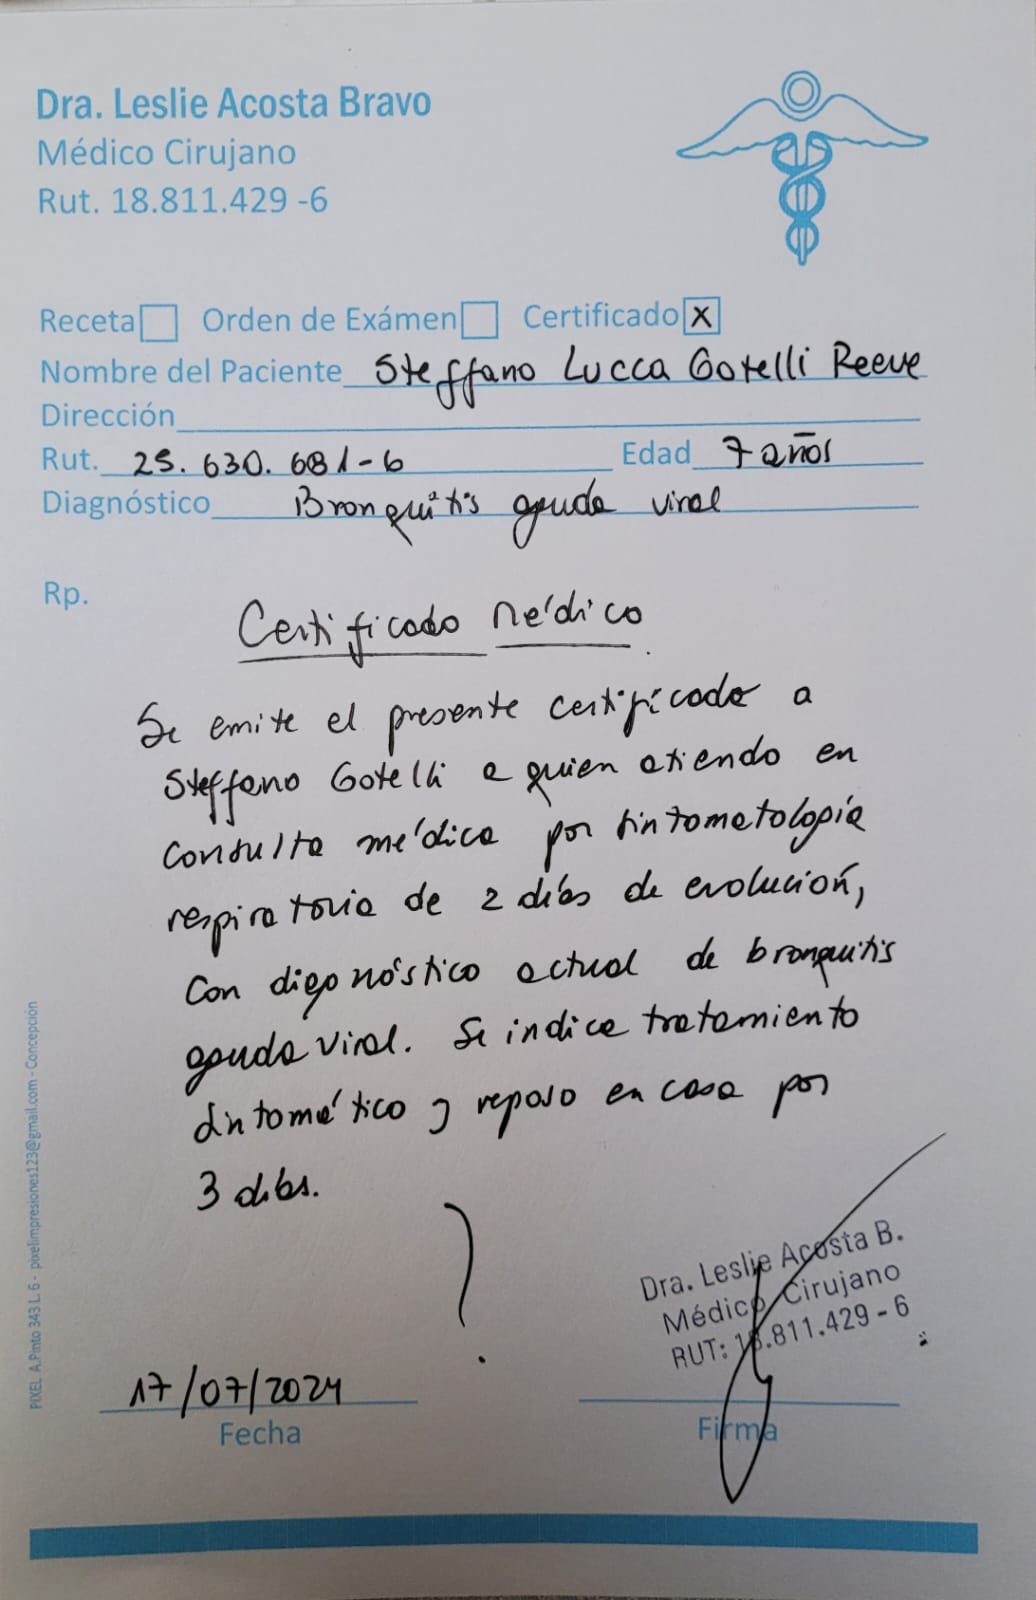 Dra. Leslie Acosta Bravo
Médico Cirujano
Rut. 18.811.429 -6
Receta Orden de Exámen Certificado X
Nombre del Paciente Steffano Lucca Gotelli Reeve
Dirección
Rut. 25.630.681-6 Edad 7 años
Diagnóstico Bronquitis aguda viral
Rp.
Certificado médico.
Se emite el presente certificado a
Steffano Gotelli a quien atiendo en
consulta médica por sintomatología
respiratoria de 2 días de evolución,
con diagnóstico actual de bronquitis
aguda viral. Se indica tratamiento
sintomático y reposo en casa por
3 días.
Dra. Leslie Acosta B.
Médico Cirujano
RUT: 18.811.429 - 6
17/07/2024
Fecha
Firma
PIXEL A.Pinto 343 L. 6 - pixelimpresiones123@gmail.com - Concepción